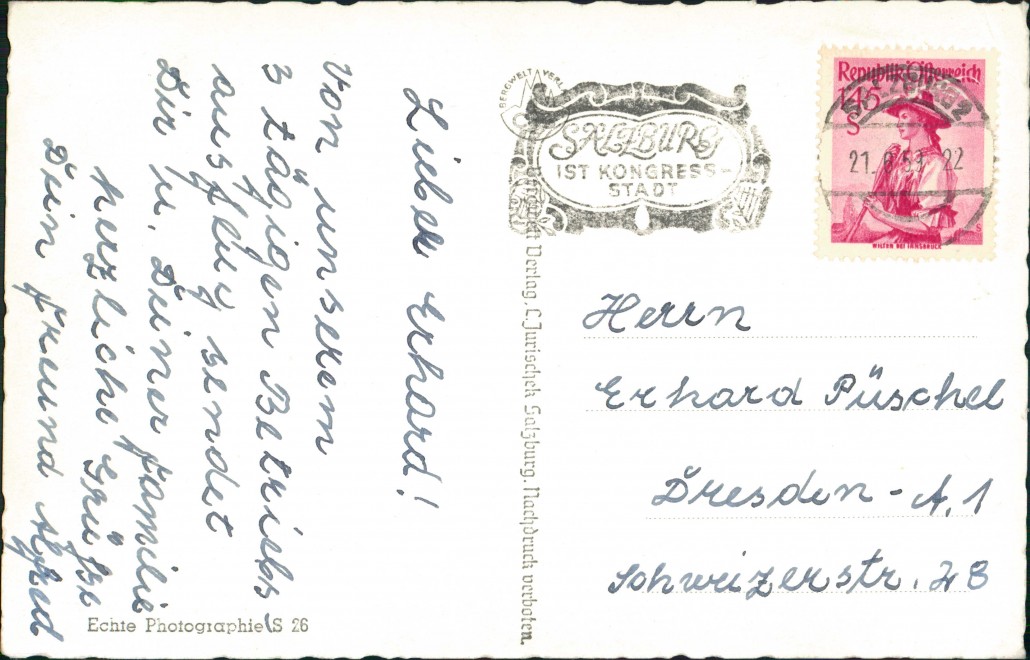 Lieber Erhard!
Von unserem
3 tägigen Betriebs-
ausflug sendet
Dir u. Deiner Familie
herzliche Grüße
Dein Freund Alfred
Echte Photographie S 26
Verlag, C. Jurischek Salzburg. Nachdruck verboten.
BERGWELT-VERL
SALZBURG
IST KONGRESS-
STADT
Republik Österreich
1.45
S
SALZBURG 2
22
WILTEN BEI INNSBRUCK
Herrn
Erhard Püschel
Dresden - A. 1
Schweizerstr.